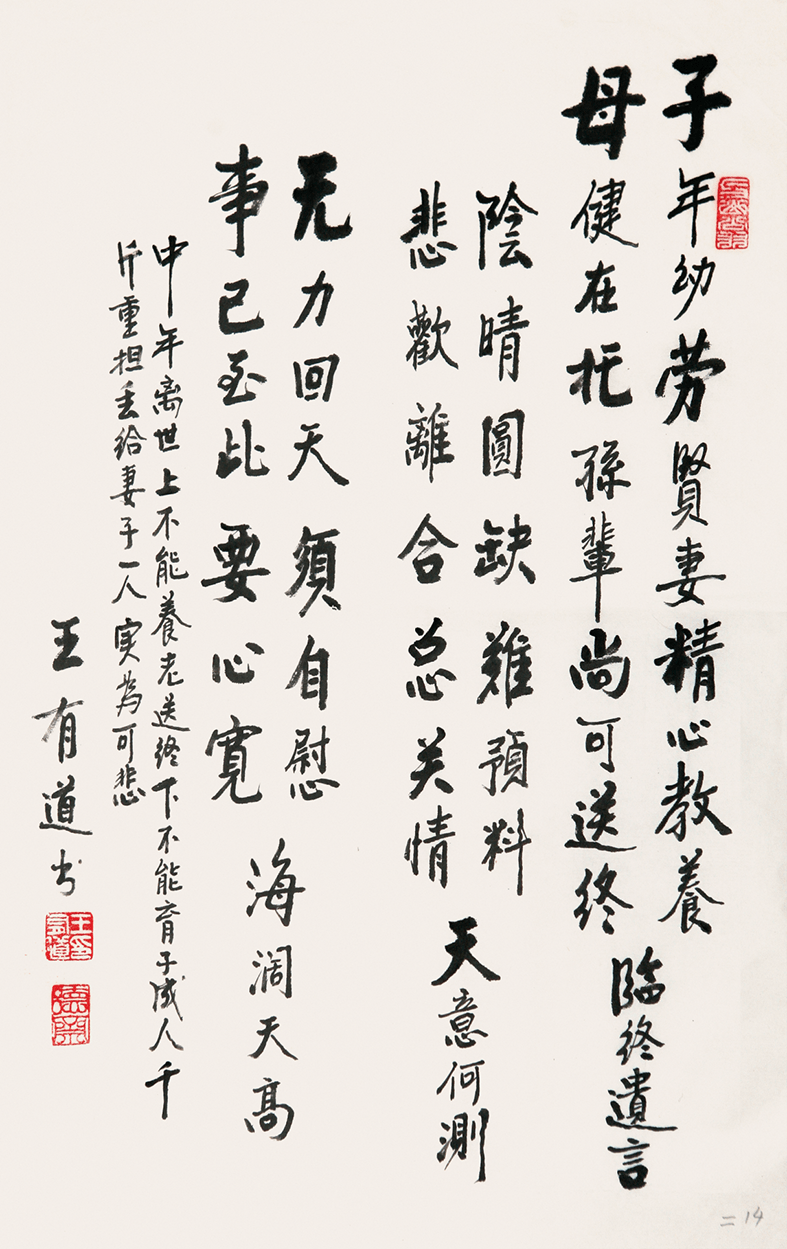 子年幼劳賢妻精心教養
母健在托孫輩尚可送终
臨终遺言
陰晴圓缺難預料
悲歡離合总关情
天意何測
无力回天須自慰
事已至此要心寬
海阔天高
中年离世上不能養老送终下不能育子成人千
斤重担丢给妻子一人实為可悲
王有道书
王有道印
二14